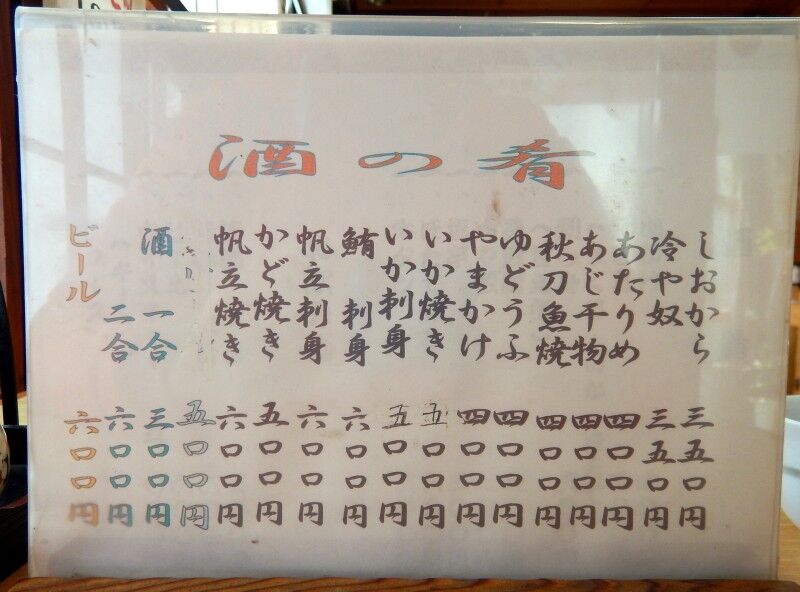 酒の肴
しおから 三五〇円
冷や奴 三五〇円
あたりめ 四〇〇円
あじ干物 四〇〇円
秋刀魚焼 四〇〇円
ゆどうふ 四〇〇円
やまかけ 四〇〇円
いか焼き 五〇〇円
いか刺身 五〇〇円
鮪刺身 六〇〇円
帆立刺身 六〇〇円
かど焼き 五〇〇円
帆立焼き 六〇〇円
五〇〇円
酒 一合 三〇〇円
二合 六〇〇円
ビール 六〇〇円